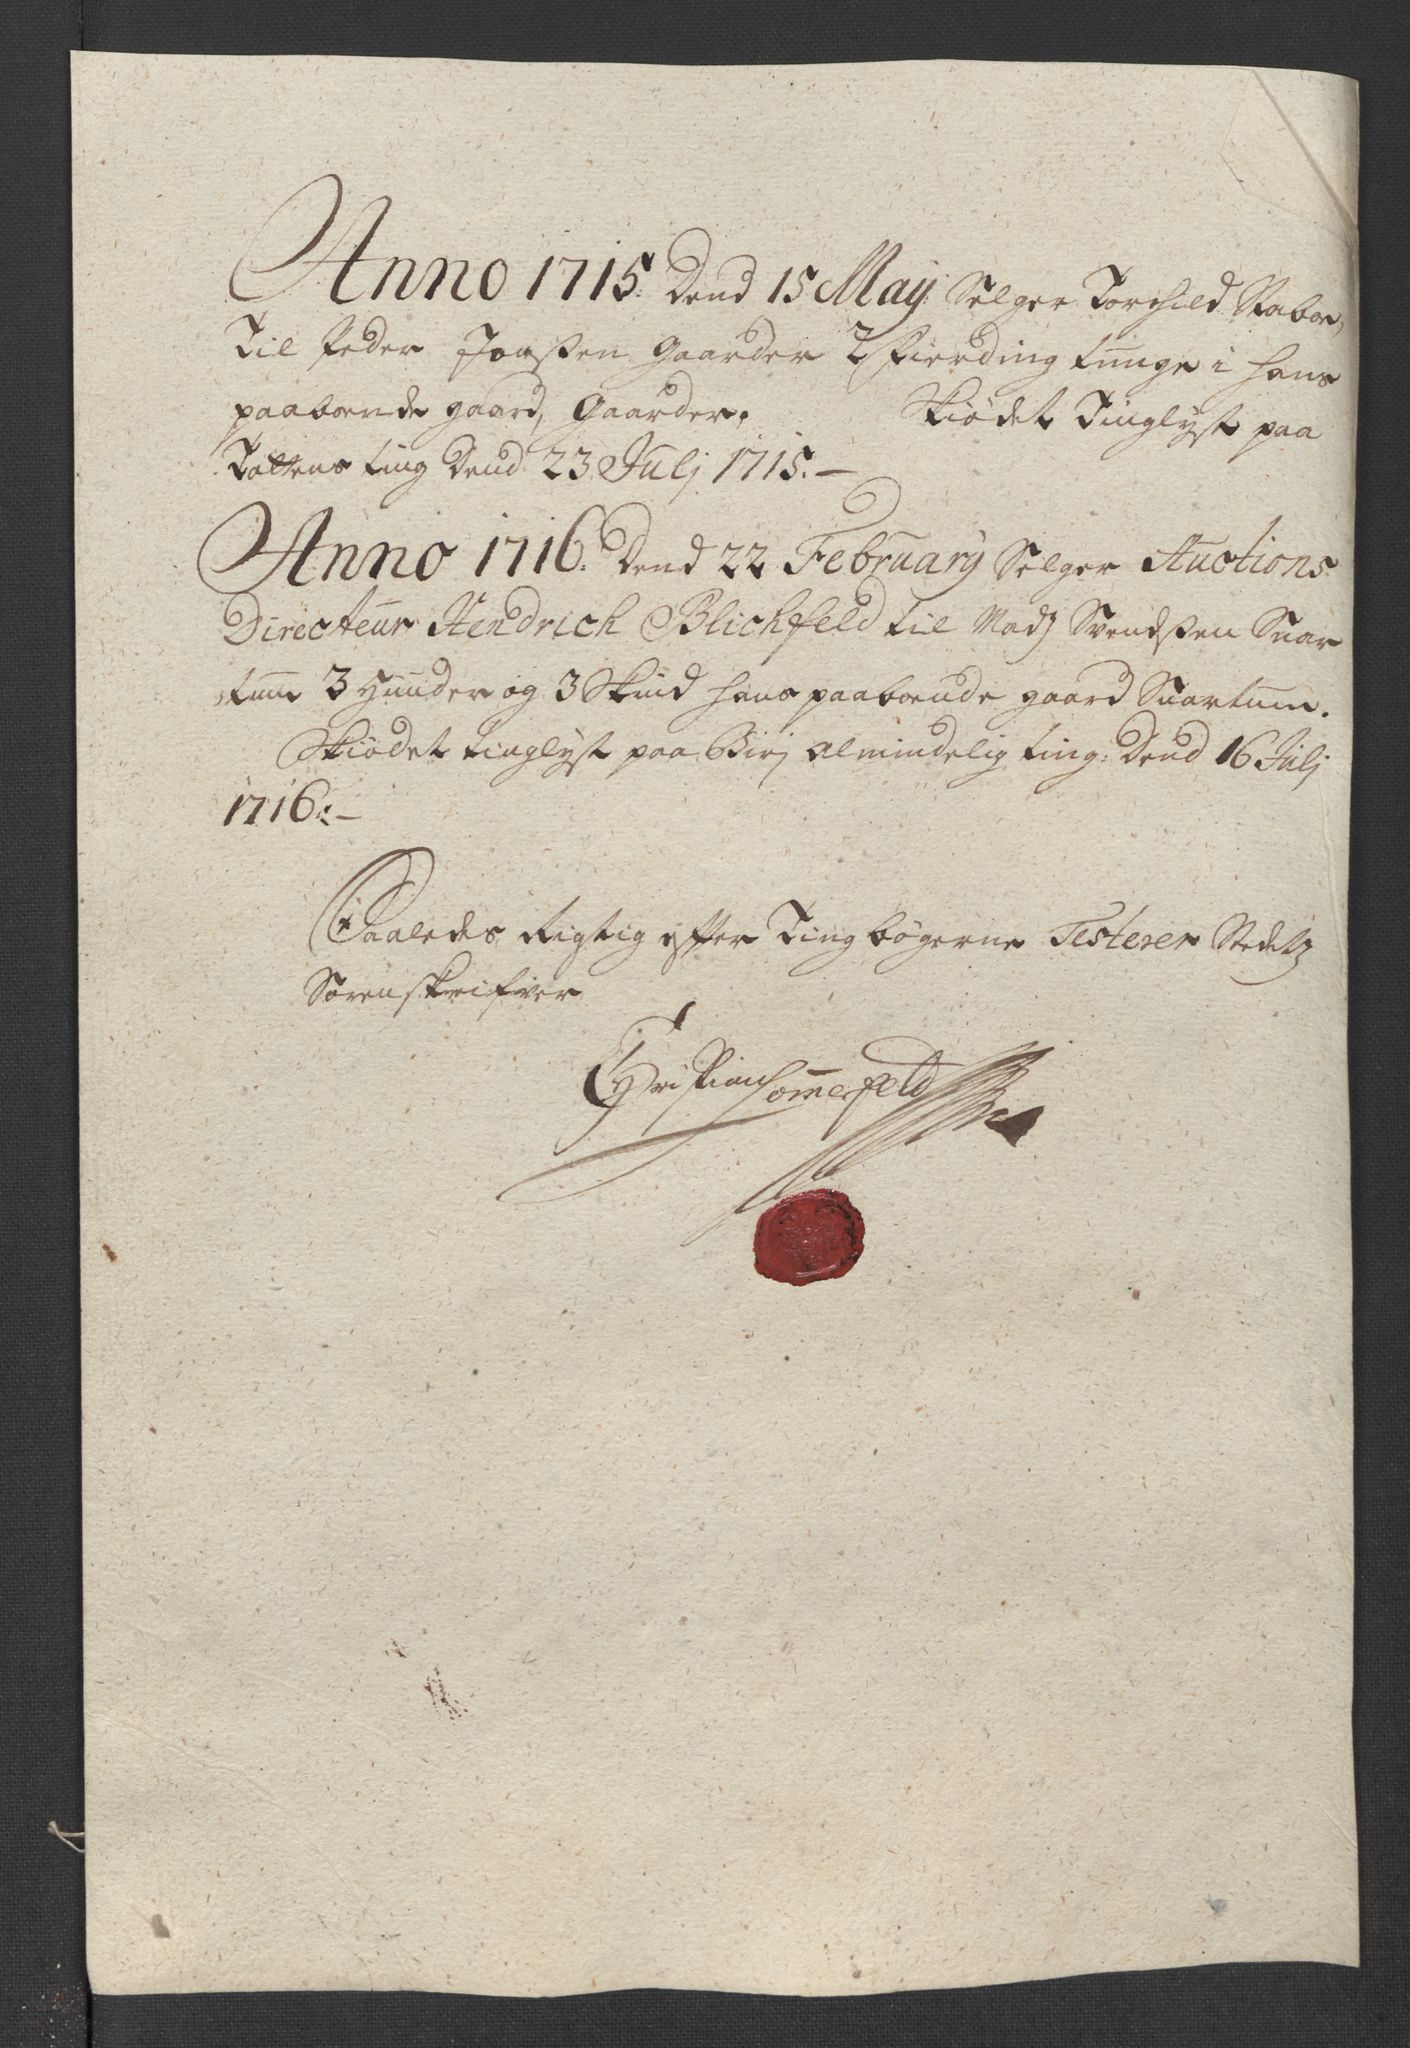 Anno 1715. Dend 15 May: Selger Torchild Staboe,
Til Peder Joenßen Gaarder 2 Fierding tunge i hans
paaboende gaard, Gaarder. Skiödet Tinglyst paa
Tottens ting Dend 23 Julj 1715.—
Anno 1716. Dend 22 February Selger Auctions
Directeur Hendrich Blichfeld til Madz Svendßen Suar
tum 3 Hunder og 3 Skind hans paaboende gaard Suartum.
Skiödet tinglyst paa Birj almindelig ting: Dend 16 Julj
1716:—
Saaledes Rigtig efter Tingbögerne Testerer Stedetz
Sorenskrifver
Christian Somerfeld